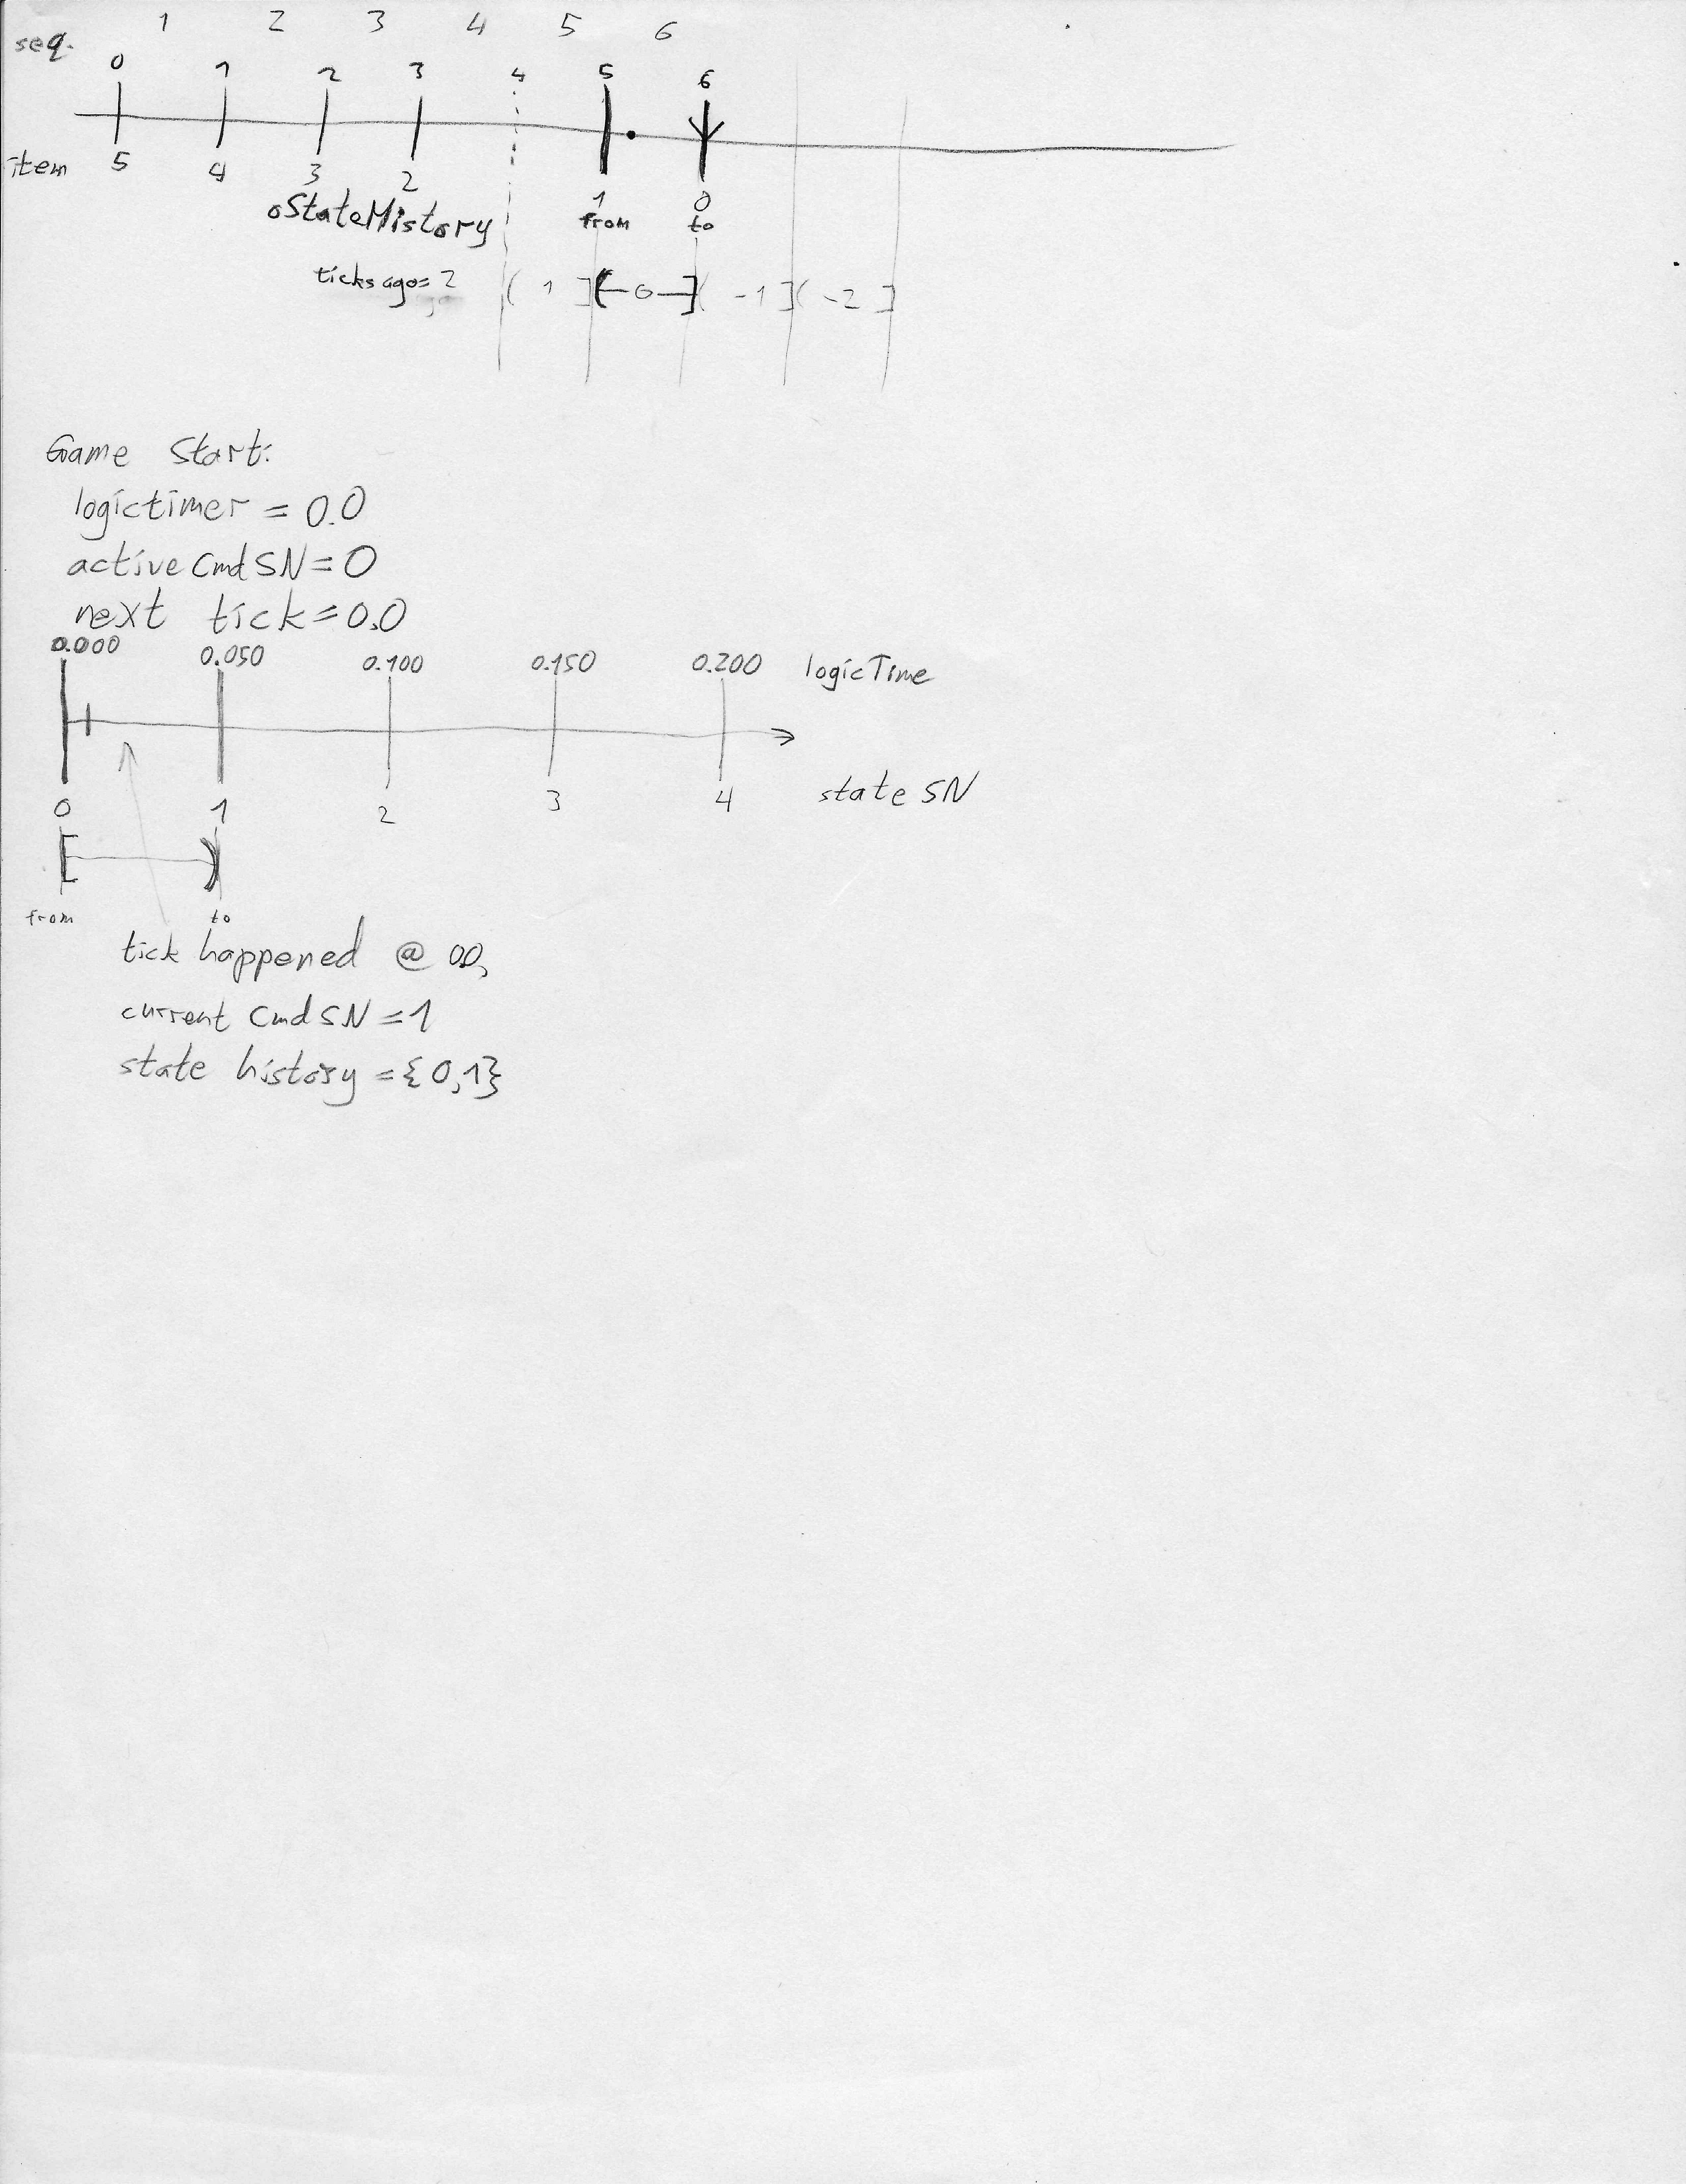 1 2 3 4 5 6
seq.
0 1 2 3 4 5 6
item 5 4 3 2 1 0
oStateHistory from to
ticks ago = 2 ( 1 ] ( 0 ] ( -1 ] ( -2 ]
Game Start:
logictimer = 0.0
active Cmd SN = 0
next tick = 0.0
0.000 0.050 0.100 0.150 0.200 logicTime
0 1 2 3 4 state SN
from to
tick happened @ 0.0,
current Cmd SN = 1
state history = {0,1}